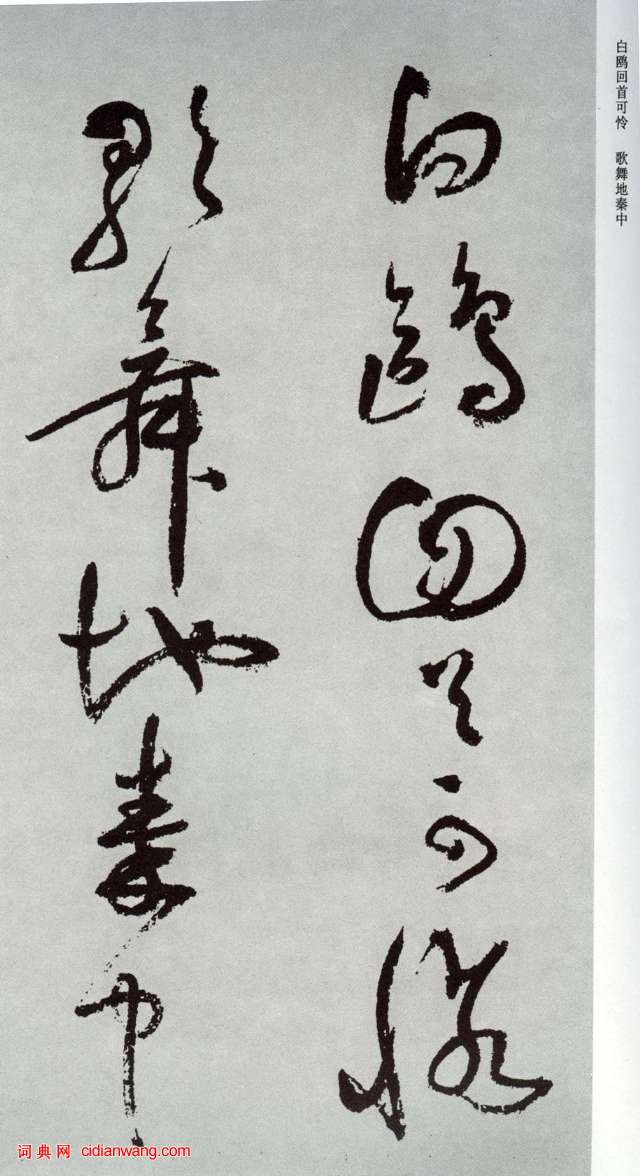 白鸥回首可怜 歌舞地秦中
白鷗回首可憐
歌舞地秦中
词典网 cidianwang.com